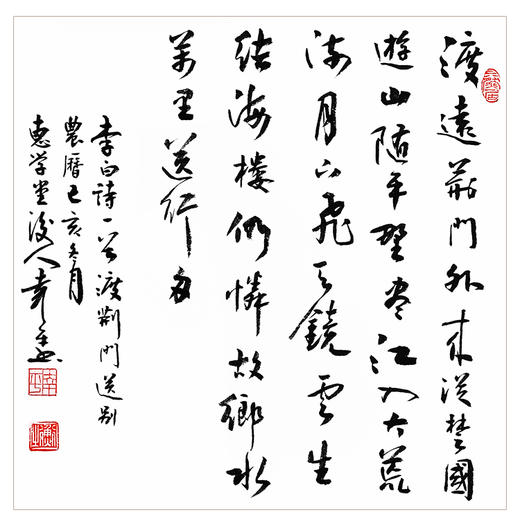 渡遠荊門外來從楚國
遊山隨平野盡江入大荒
流月下飛天鏡雲生
結海樓仍憐故鄉水
萬里送行舟
李白詩一首渡荊門送别
農曆己亥冬月
惠学堂後人